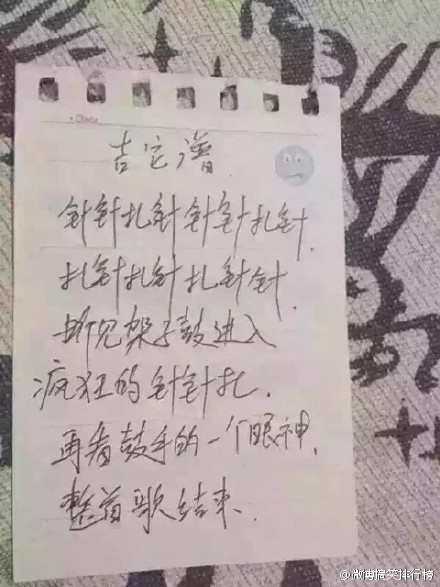 吉它谱
针针扎针针针扎针.
扎针扎针扎针针.
听见架子鼓进入
疯狂的针针扎.
再看鼓手的一个眼神.
整首歌结束.
@微博搞笑排行榜